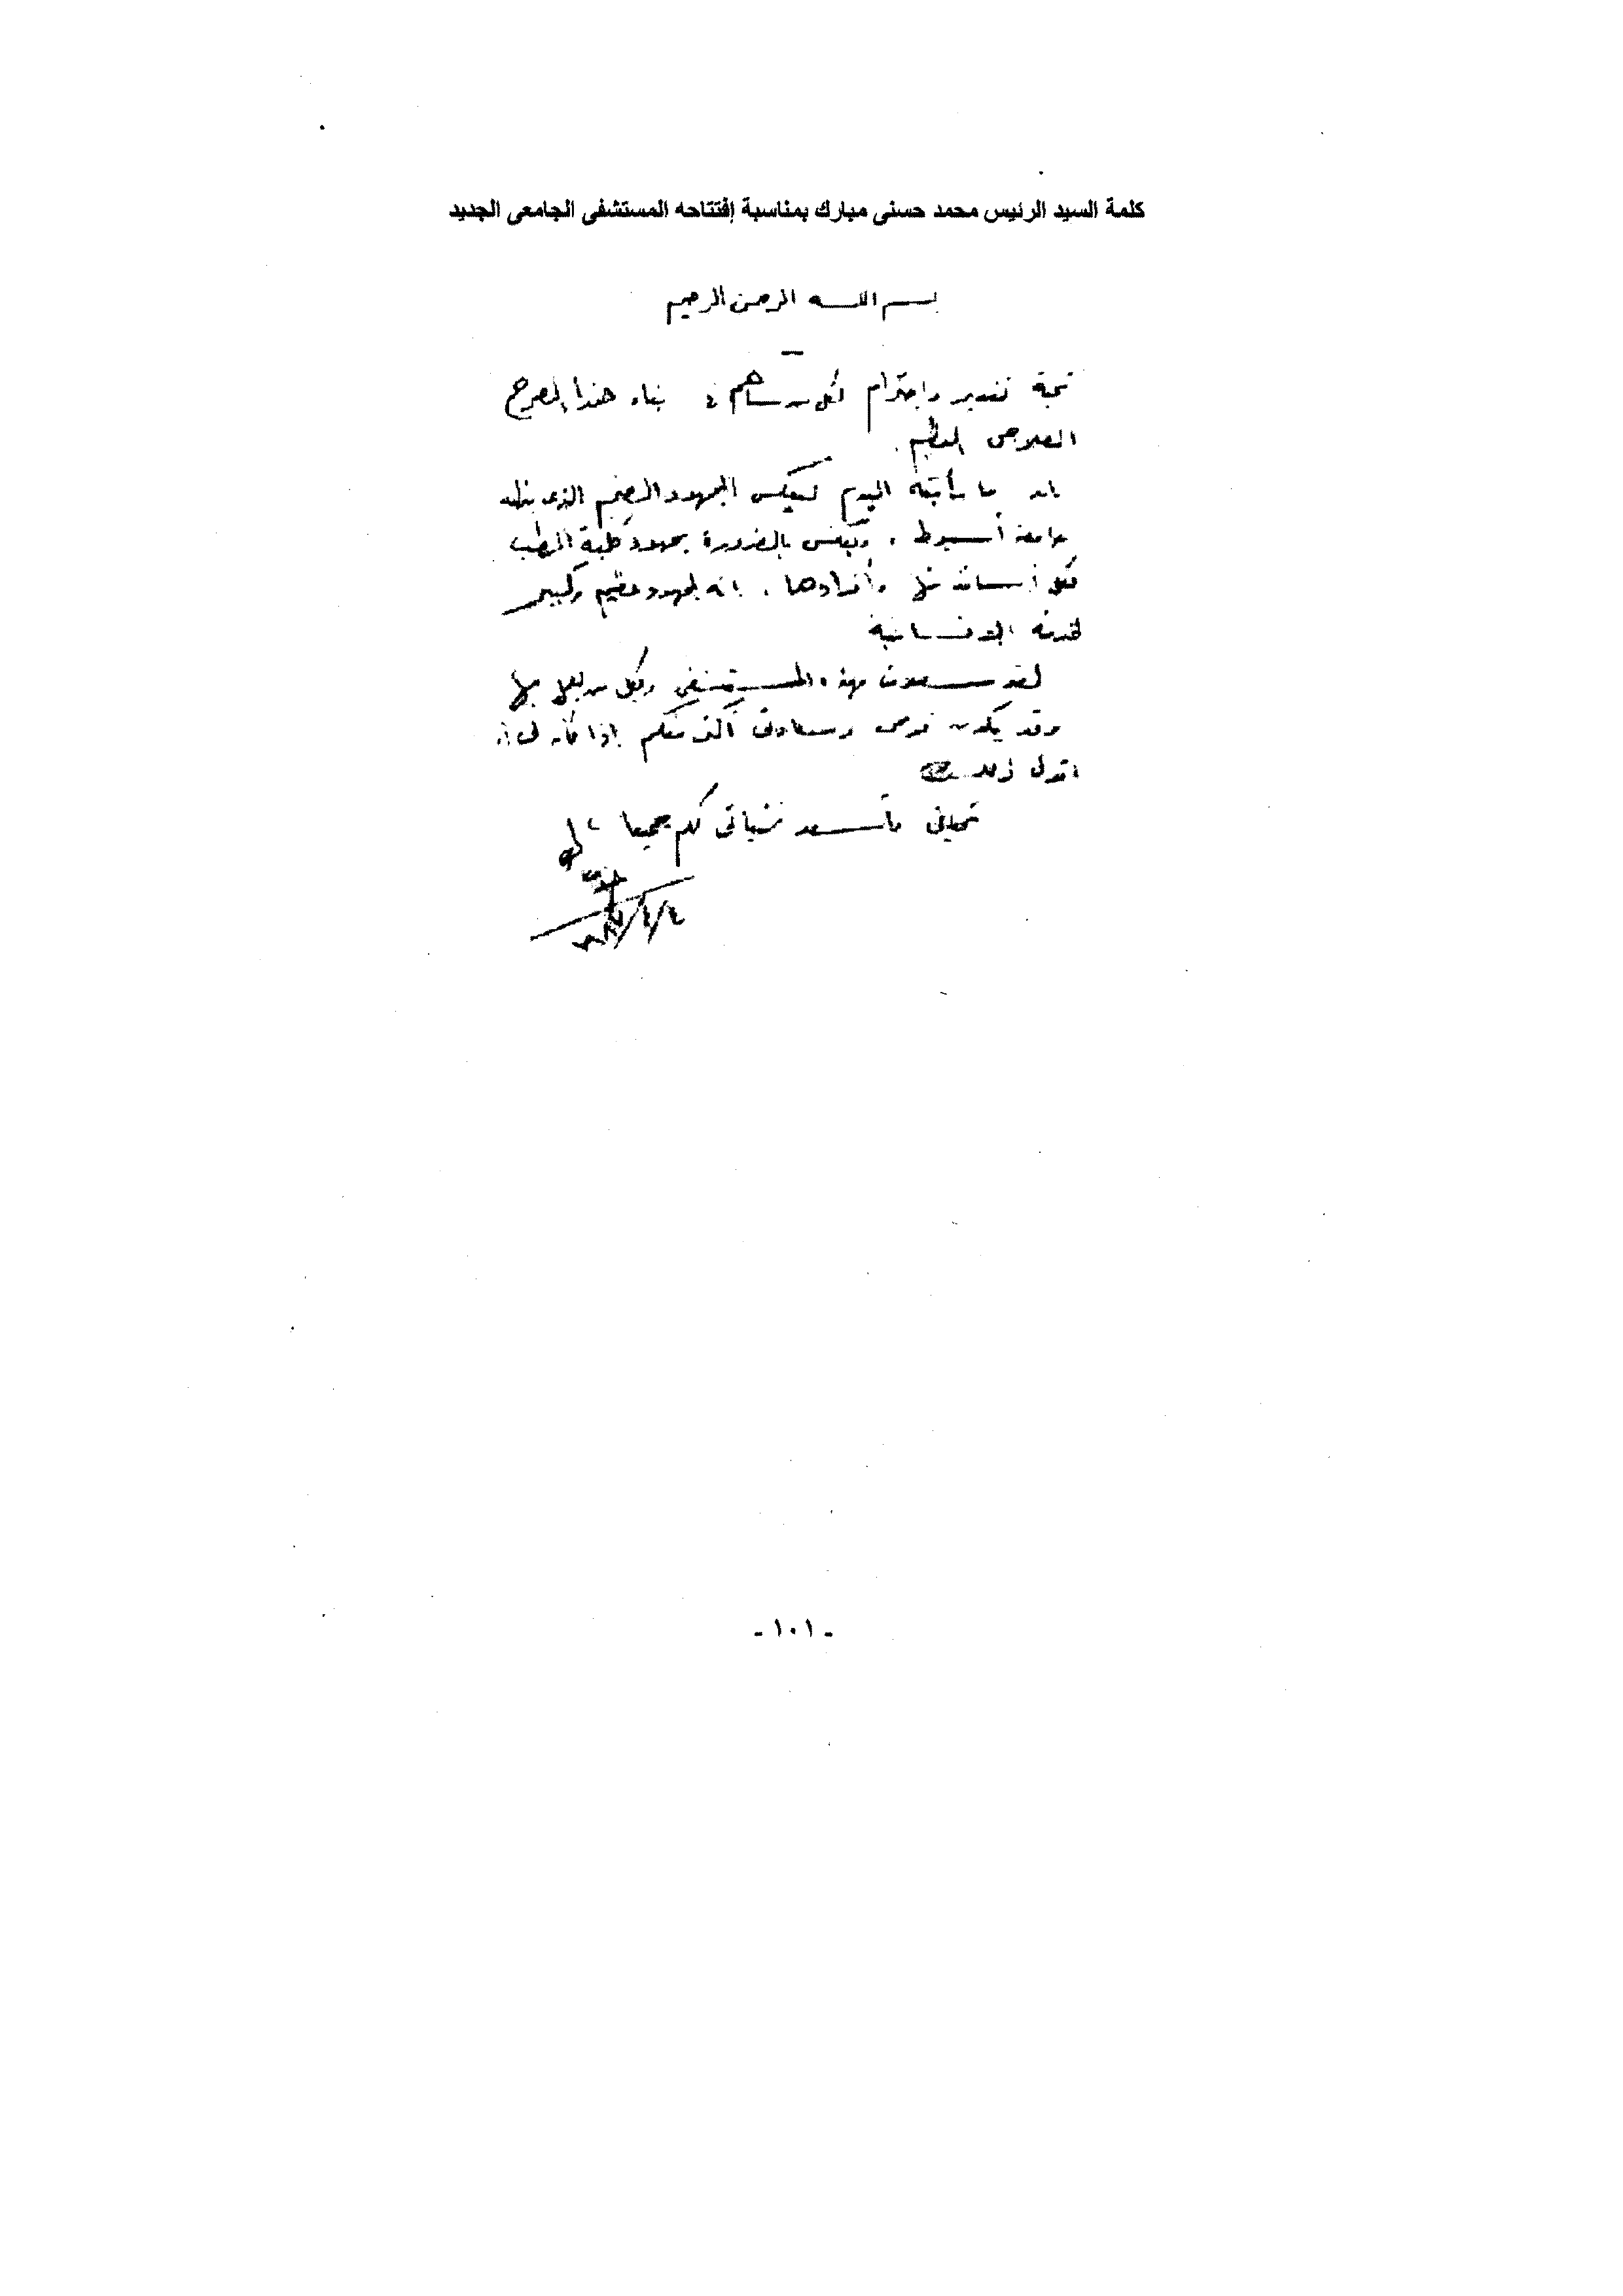 كلمة السيد الرئيس محمد حسنى مبارك بمناسبة إفتتاحه المستشفى الجامعى الجديد
بسم الله الرحمن الرحيم
تحية تقدير واحترام لكل من ساهم فى بناء هذا الصرح
العلاجى العظيم.
ان ما رأيته اليوم ليعكس المجهود الضخم الذى بذلته
جامعة أسيوط، ويعكس بالضرورة مجهود كلية الطب
بكل أساتذتها وأفرادها. انه لمجهود عظيم وكبير
لخدمة الانسانية
لقد سعدت بهذه المستشفى وبكل من يعمل بها
وقد يكون فرحى وسعادتى أكثر منكم اذا كان لى أن
اقول ذلك
تحياتى وأسعد تمنياتى لكم جميعا
- ١٠١ -